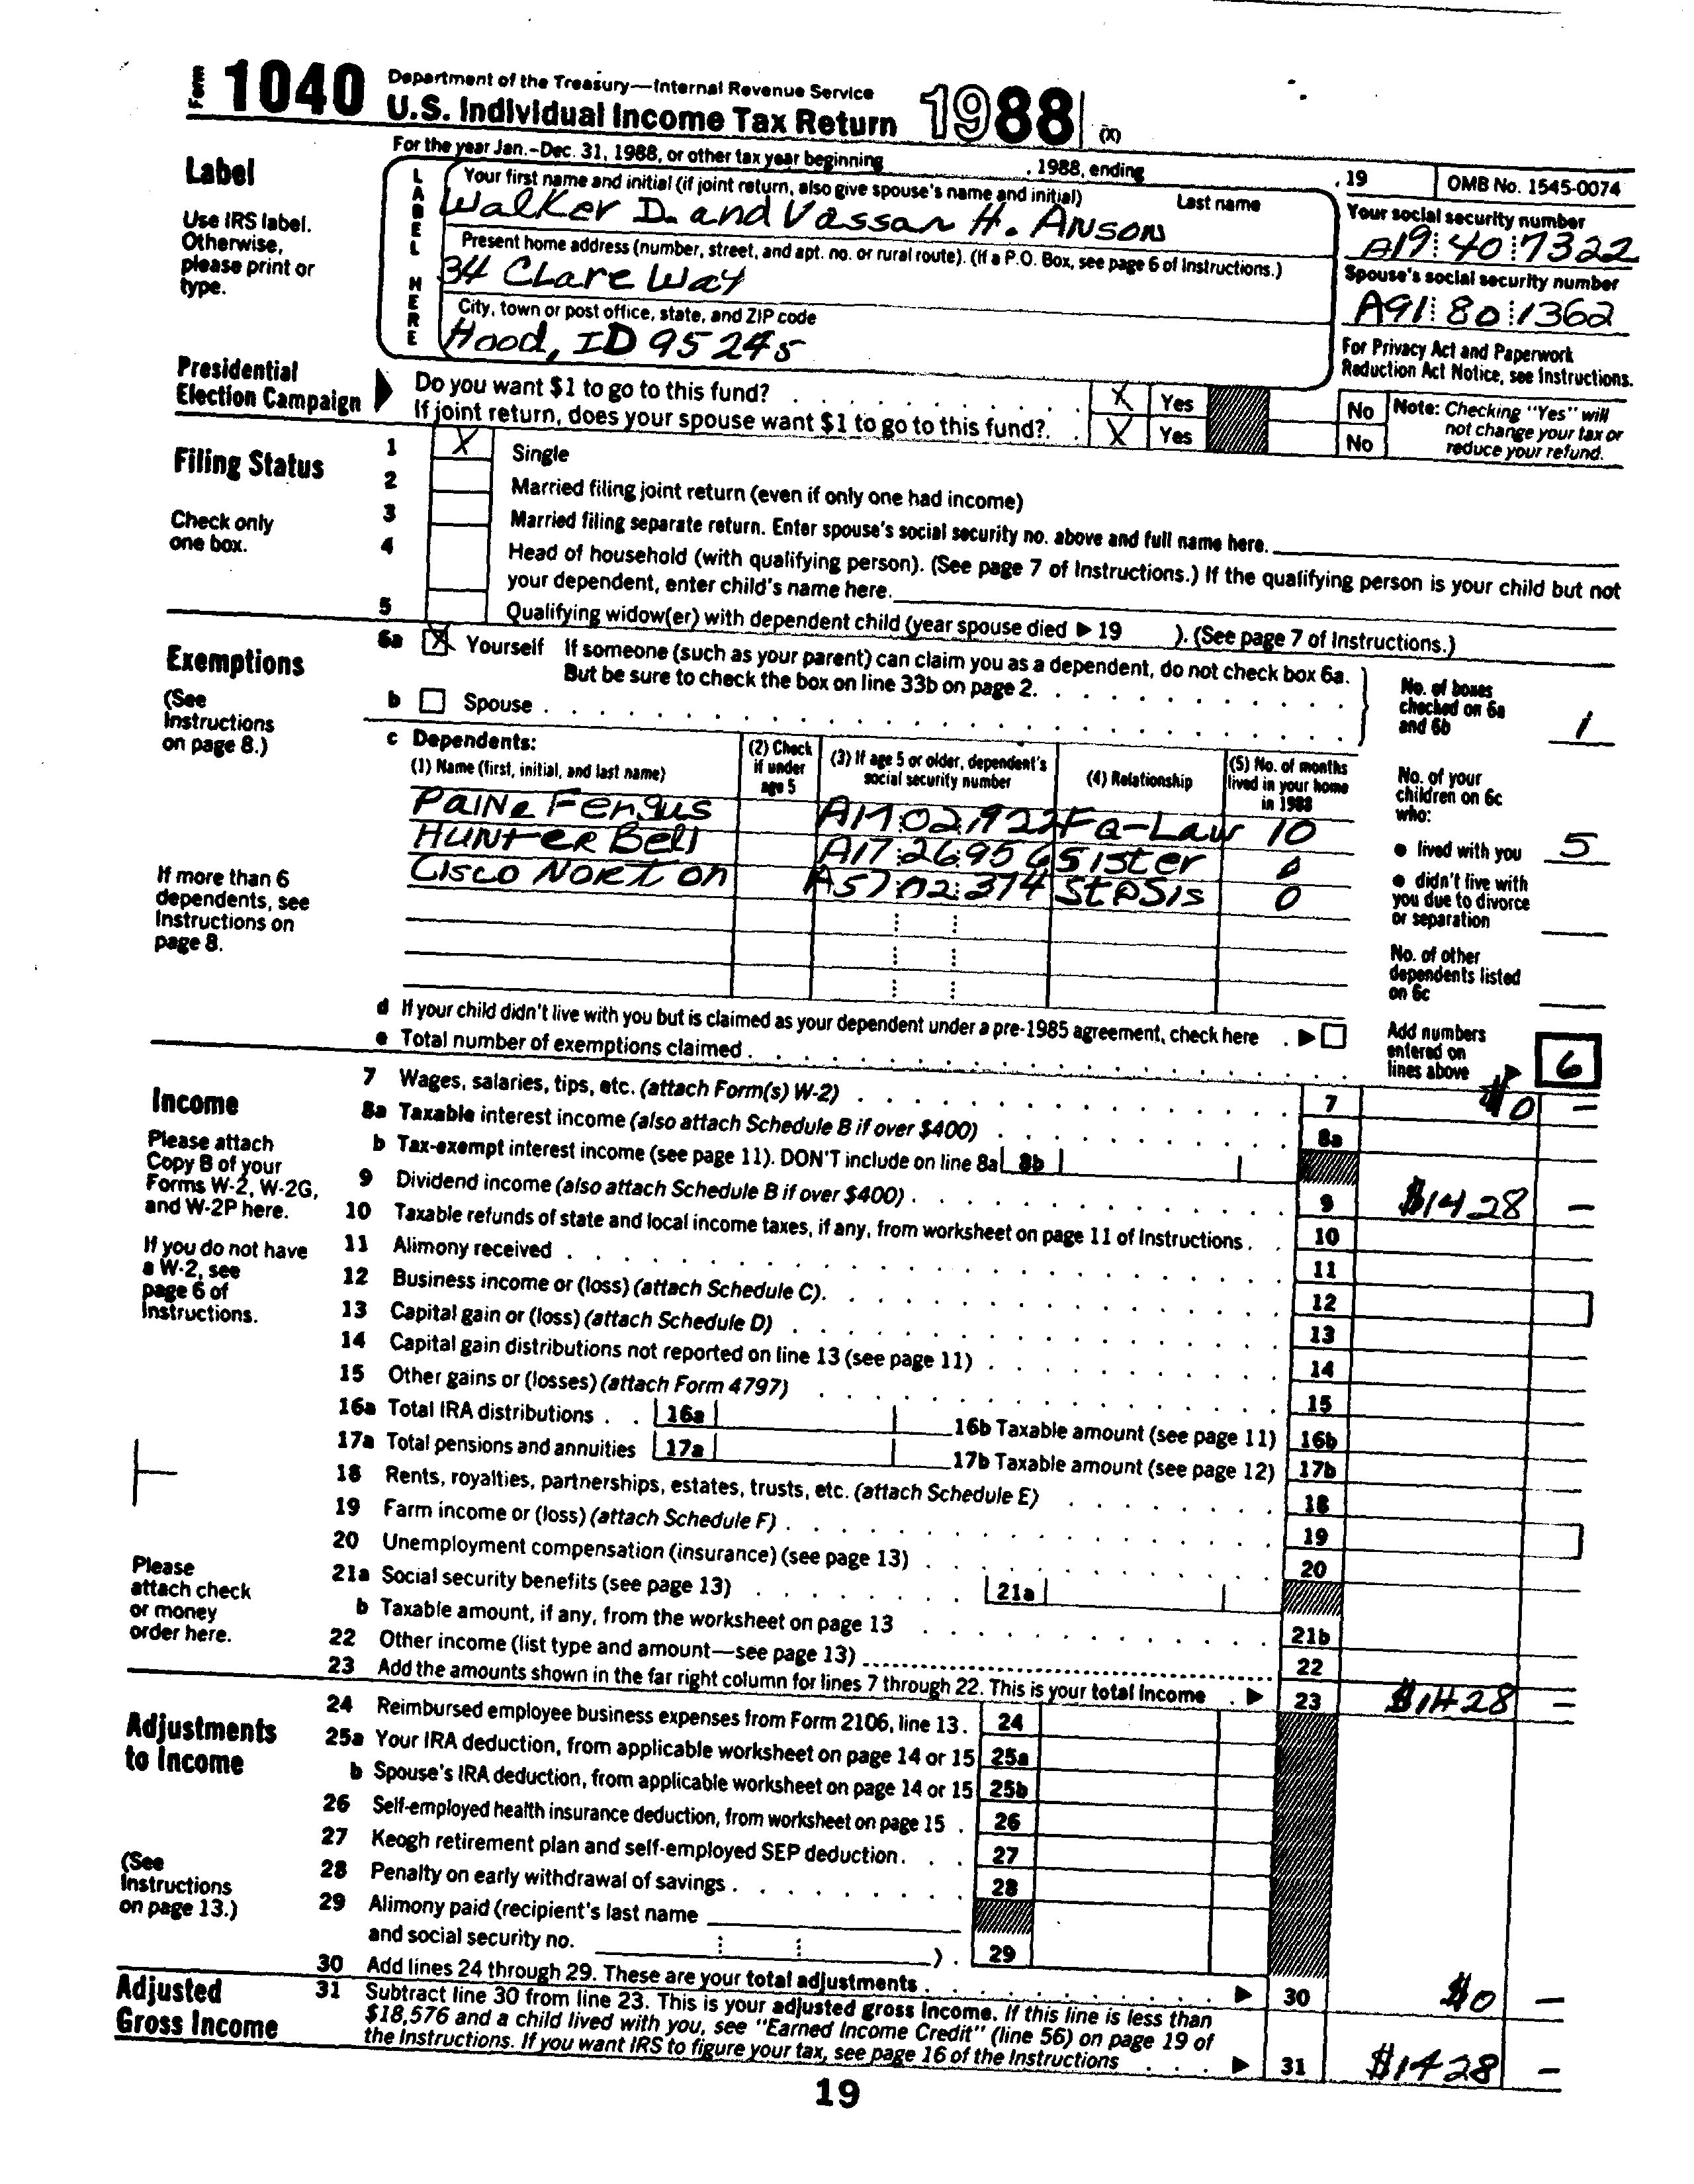 Form 1040 Department of the Treasury—Internal Revenue Service
U.S. Individual Income Tax Return 1988 (X)
For the year Jan.–Dec. 31, 1988, or other tax year beginning , 1988, ending , 19 OMB No. 1545-0074
Label
Use IRS label.
Otherwise,
please print or
type.
LABEL HERE
Your first name and initial (if joint return, also give spouse's name and initial) Last name
Walker D. and Vassar H. Anson
Your social security number
A19 40 7322
Present home address (number, street, and apt. no. or rural route). (If a P.O. Box, see page 6 of Instructions.)
34 Clare Way
Spouse's social security number
A91 80 1362
City, town or post office, state, and ZIP code
Hood, ID 95245
For Privacy Act and Paperwork
Reduction Act Notice, see Instructions.
Presidential
Election Campaign
Do you want $1 to go to this fund? X Yes No
If joint return, does your spouse want $1 to go to this fund? X Yes No
Note: Checking "Yes" will
not change your tax or
reduce your refund.
Filing Status
Check only
one box.
1 X Single
2 Married filing joint return (even if only one had income)
3 Married filing separate return. Enter spouse's social security no. above and full name here.
4 Head of household (with qualifying person). (See page 7 of Instructions.) If the qualifying person is your child but not
your dependent, enter child's name here.
5 Qualifying widow(er) with dependent child (year spouse died ▶ 19 ). (See page 7 of Instructions.)
Exemptions
(See
Instructions
on page 8.)
6a X Yourself If someone (such as your parent) can claim you as a dependent, do not check box 6a.
But be sure to check the box on line 33b on page 2.
b Spouse
No. of boxes
checked on 6a
and 6b 1
c Dependents:
(1) Name (first, initial, and last name)
(2) Check
if under
age 5
(3) If age 5 or older, dependent's
social security number
(4) Relationship
(5) No. of months
lived in your home
in 1988
Paine Fergus Fa-Law 10
Hunter Bell A17 26 956 Sister 0
Cisco Norton A57 02 374 StpSis 0
If more than 6
dependents, see
Instructions on
page 8.
No. of your
children on 6c
who:
● lived with you 5
● didn't live with
you due to divorce
or separation
No. of other
dependents listed
on 6c
d If your child didn't live with you but is claimed as your dependent under a pre-1985 agreement, check here ▶
e Total number of exemptions claimed
Add numbers
entered on
lines above ▶ 6
Income
Please attach
Copy B of your
Forms W-2, W-2G,
and W-2P here.
If you do not have
a W-2, see
page 6 of
Instructions.
7 Wages, salaries, tips, etc. (attach Form(s) W-2) 7 $0 —
8a Taxable interest income (also attach Schedule B if over $400) 8a
b Tax-exempt interest income (see page 11). DON'T include on line 8a 8b
9 Dividend income (also attach Schedule B if over $400) 9 $1428 —
10 Taxable refunds of state and local income taxes, if any, from worksheet on page 11 of Instructions 10
11 Alimony received 11
12 Business income or (loss) (attach Schedule C) 12
13 Capital gain or (loss) (attach Schedule D) 13
14 Capital gain distributions not reported on line 13 (see page 11) 14
15 Other gains or (losses) (attach Form 4797) 15
16a Total IRA distributions 16a 16b Taxable amount (see page 11) 16b
17a Total pensions and annuities 17a 17b Taxable amount (see page 12) 17b
18 Rents, royalties, partnerships, estates, trusts, etc. (attach Schedule E) 18
19 Farm income or (loss) (attach Schedule F) 19
20 Unemployment compensation (insurance) (see page 13) 20
Please
attach check
or money
order here.
21a Social security benefits (see page 13) 21a
b Taxable amount, if any, from the worksheet on page 13 21b
22 Other income (list type and amount—see page 13) 22
23 Add the amounts shown in the far right column for lines 7 through 22. This is your total income ▶ 23 $1428 —
Adjustments
to Income
(See
Instructions
on page 13.)
24 Reimbursed employee business expenses from Form 2106, line 13. 24
25a Your IRA deduction, from applicable worksheet on page 14 or 15 25a
b Spouse's IRA deduction, from applicable worksheet on page 14 or 15 25b
26 Self-employed health insurance deduction, from worksheet on page 15 26
27 Keogh retirement plan and self-employed SEP deduction 27
28 Penalty on early withdrawal of savings 28
29 Alimony paid (recipient's last name
and social security no. ) 29
30 Add lines 24 through 29. These are your total adjustments ▶ 30 $0 —
Adjusted
Gross Income
31 Subtract line 30 from line 23. This is your adjusted gross income. If this line is less than
$18,576 and a child lived with you, see "Earned Income Credit" (line 56) on page 19 of
the Instructions. If you want IRS to figure your tax, see page 16 of the Instructions ▶ 31 $1428 —
19